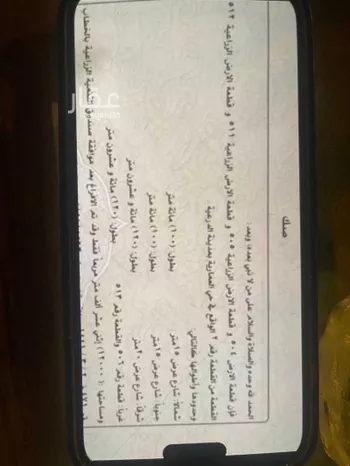 صك
الحمد لله وحده والصلاة والسلام على من لا نبي بعده، وبعد:
فإن قطعة الارض ٥٠٤ و قطعة الارض الزراعية ٥٠٥ و قطعة الارض الزراعية ٥١١ و قطعة الارض الزراعية ٥١٢
القطعة من القطعة رقم ٢ الواقع في حي العمارية بمدينة الدرعية
وحدودها وأطوالها كالتالي
شمالا: شارع عرض ١٥متر بطول: (١٠٠) مائة متر
جنوبا: شارع عرض ١٥متر بطول: (١٠٠) مائة متر
شرقا: شارع عرض ٢٠متر بطول: (١٢٠) مائة و عشرون متر
غربا: قطعة رقم ٥٠٦ والقطعة رقم ٥١٣ بطول: (١٢٠) مائة و عشرون متر
ومساحتها: (١٢٠٠٠) إثني عشر ألف متر مربعا فقط وقد تم الافراغ بعد موافقة صندوق التنمية الزراعية بالخطاب
عقار